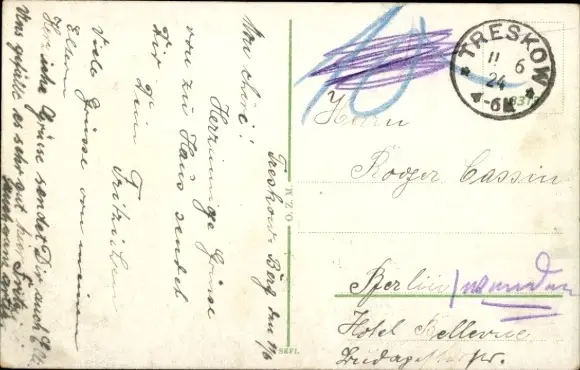 Treskow Berg den 11/6
Mon chéri!
Herzinnige Grüsse
von zu Haus sendet
Dir
Dein Fritzchen
Viele Grüsse von meinen
Eltern
Herzliche Grüsse sendet Dir auch
Uns gefällt es sehr gut hier
O. Z. M.
SKFL.
TRESKOW
11 6
24
4-6N
Herrn
Roger Cassin
Berlin / wenden
Hotel Bellevue